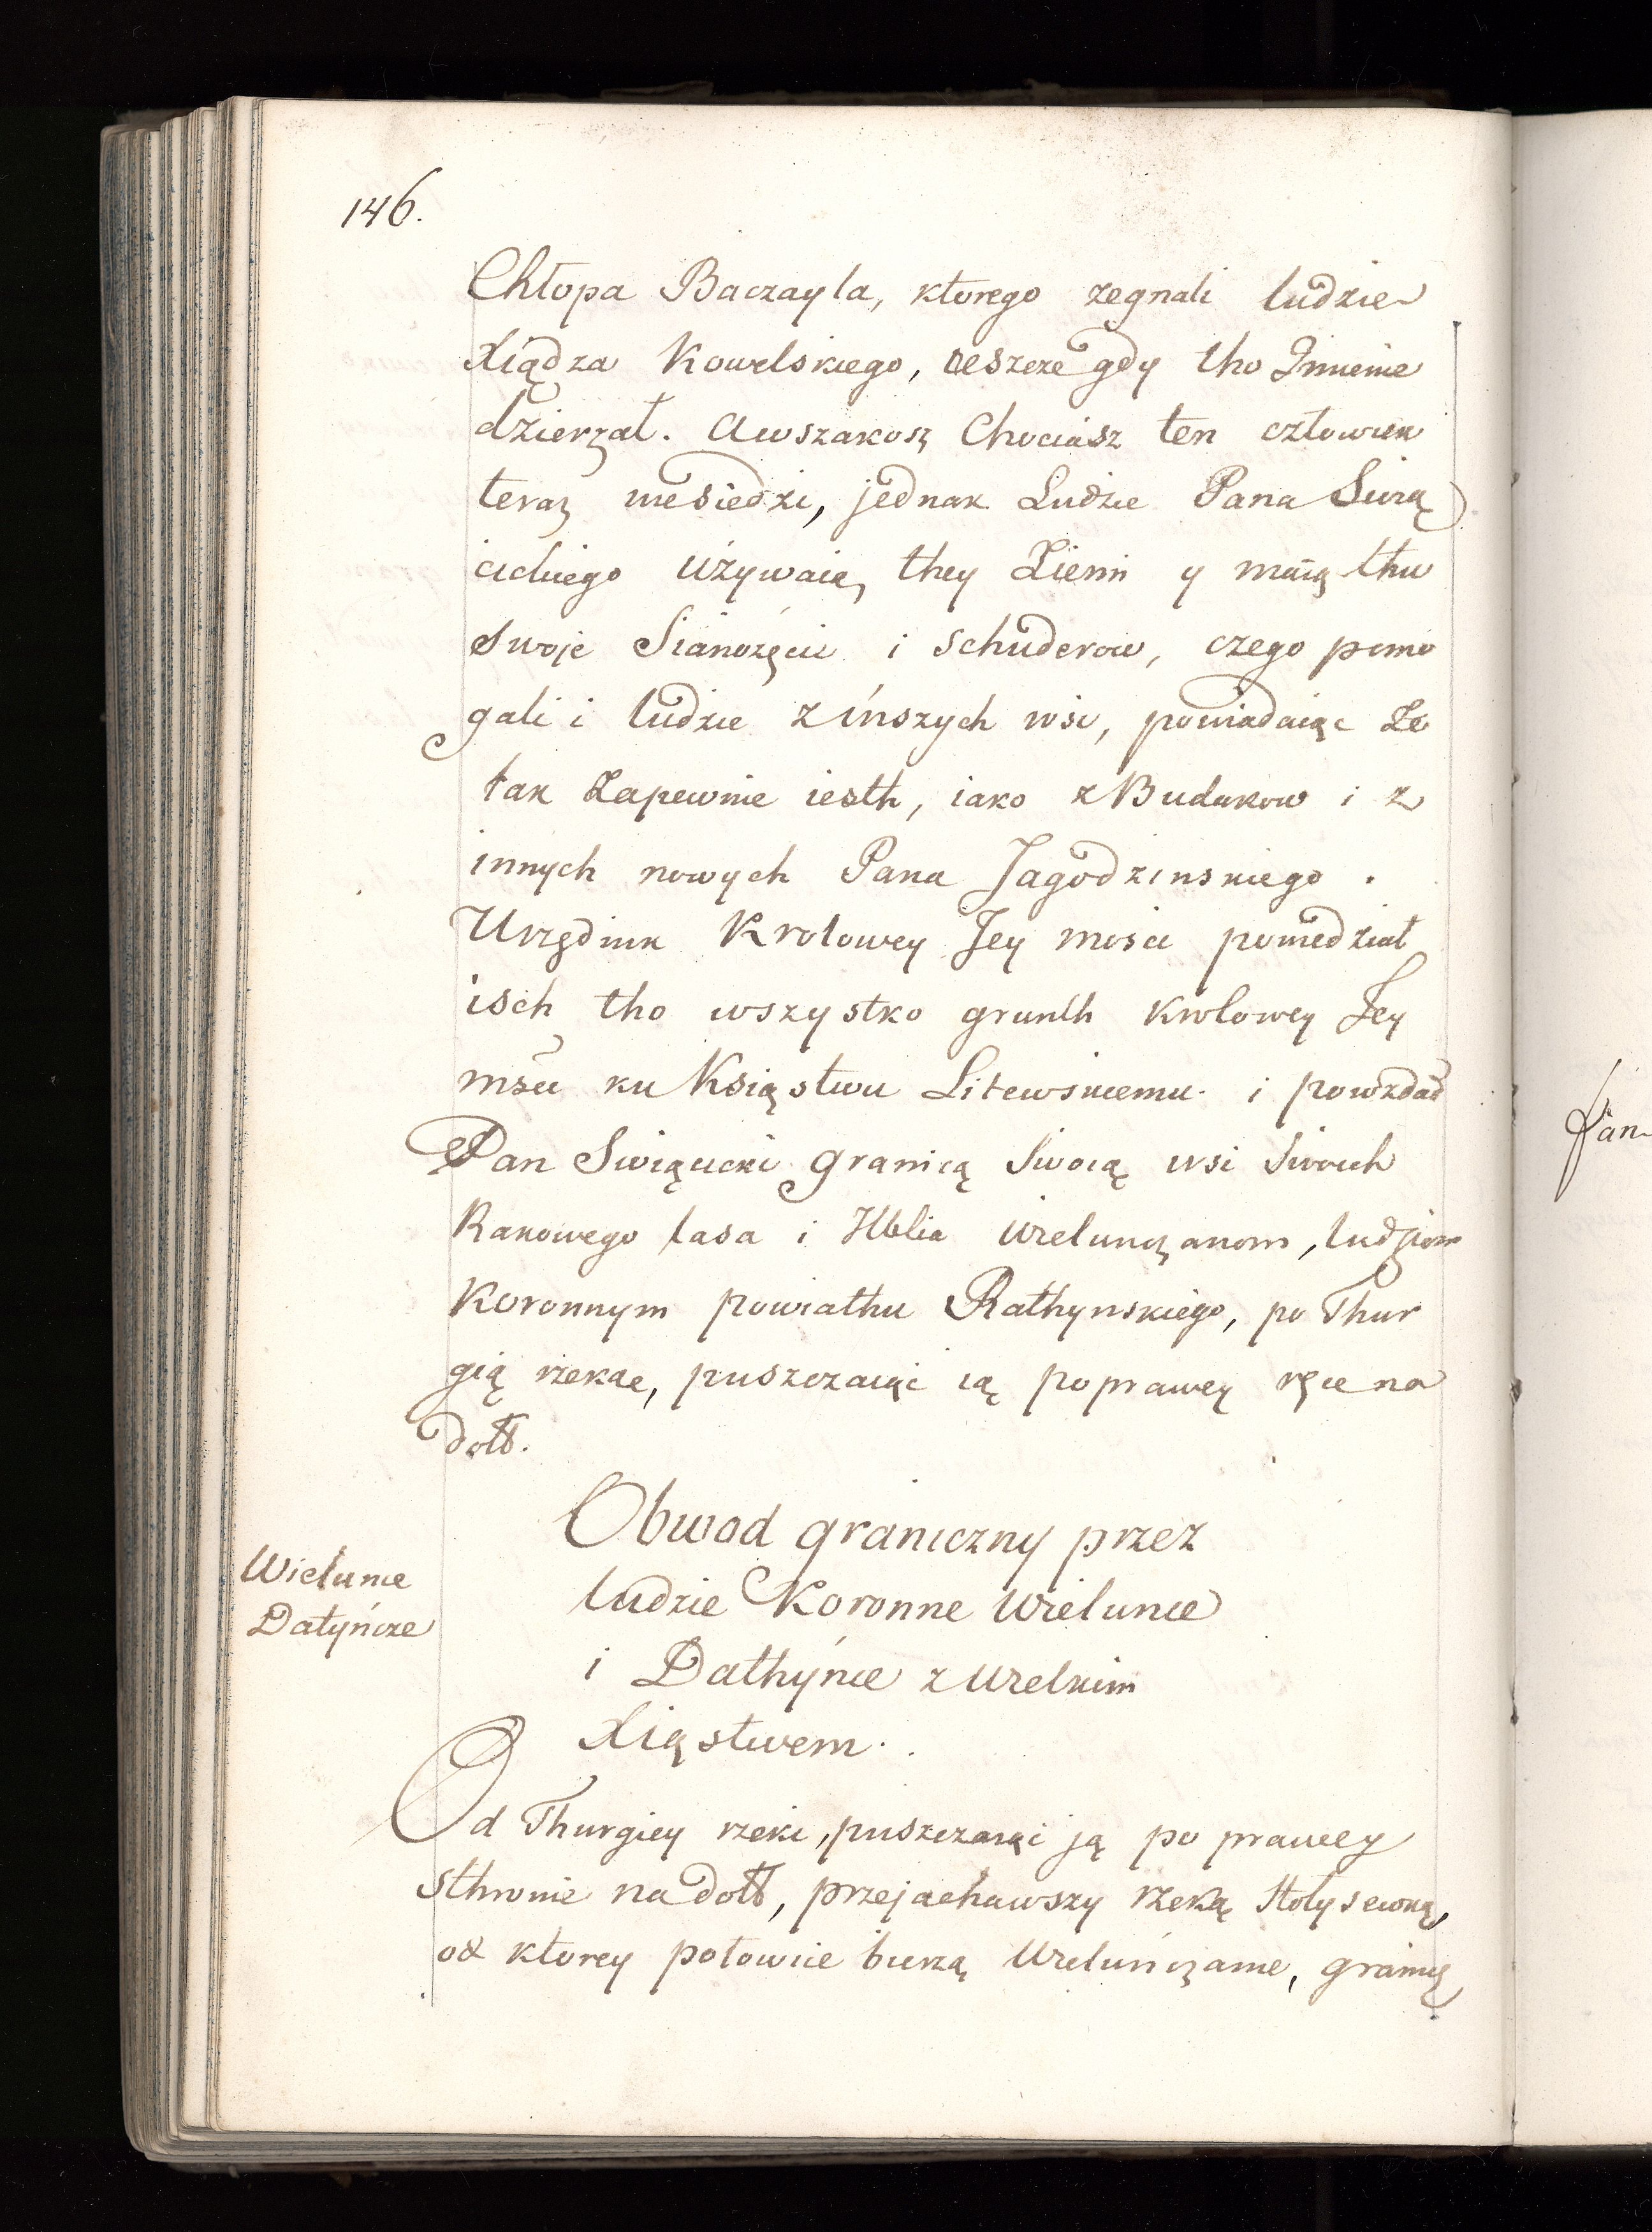 146.
Chłopa Baczayla, ktorego zegnali ludzie
Xiądza Kowelskiego, ieszcze gdy tho Imienie
dzierzał. Awszakosz Chociasz ten człowiek
teraz niesiedzi, jednak Ludzie Pana Swią
cickiego używaią they Ziemi y maią thu
swoje Sianożęci i schuderow, czego pomo
gali i ludzie z ínszych wsi, powiadaiąc że
tak Zapewnie iesth, iako z Budakow i z
innych nowych Pana Jagodzinskiego.
Urzędnik Krolowey Jey mosci powiedział
isch tho wszystko grunth krolowey Jey
msci ku Księstwu Litewskiemu. i powzdał
Pan Swiącicki granicą Swoią wsi Swoich
Rakowego lasa i Hblia Wielunczanom, ludziom
Koronnym powiathu Rathynskiego, po Thur
gią rzekae, puszczaiąc ią poprawey ręce na
dołł.
Obwod graniczny przez
ludzie Koronne Wielunce
i Dathyńce z Wielkim
Xięstwem.
Wielunce
Datyńcze
Od Thurgiey rzeki, puszczaiąc ją po prawey
sthronie na dołł, przejachawszy rzeką Hołysewną,
od ktorey połowice bierzą Wieluńczanie, granicą